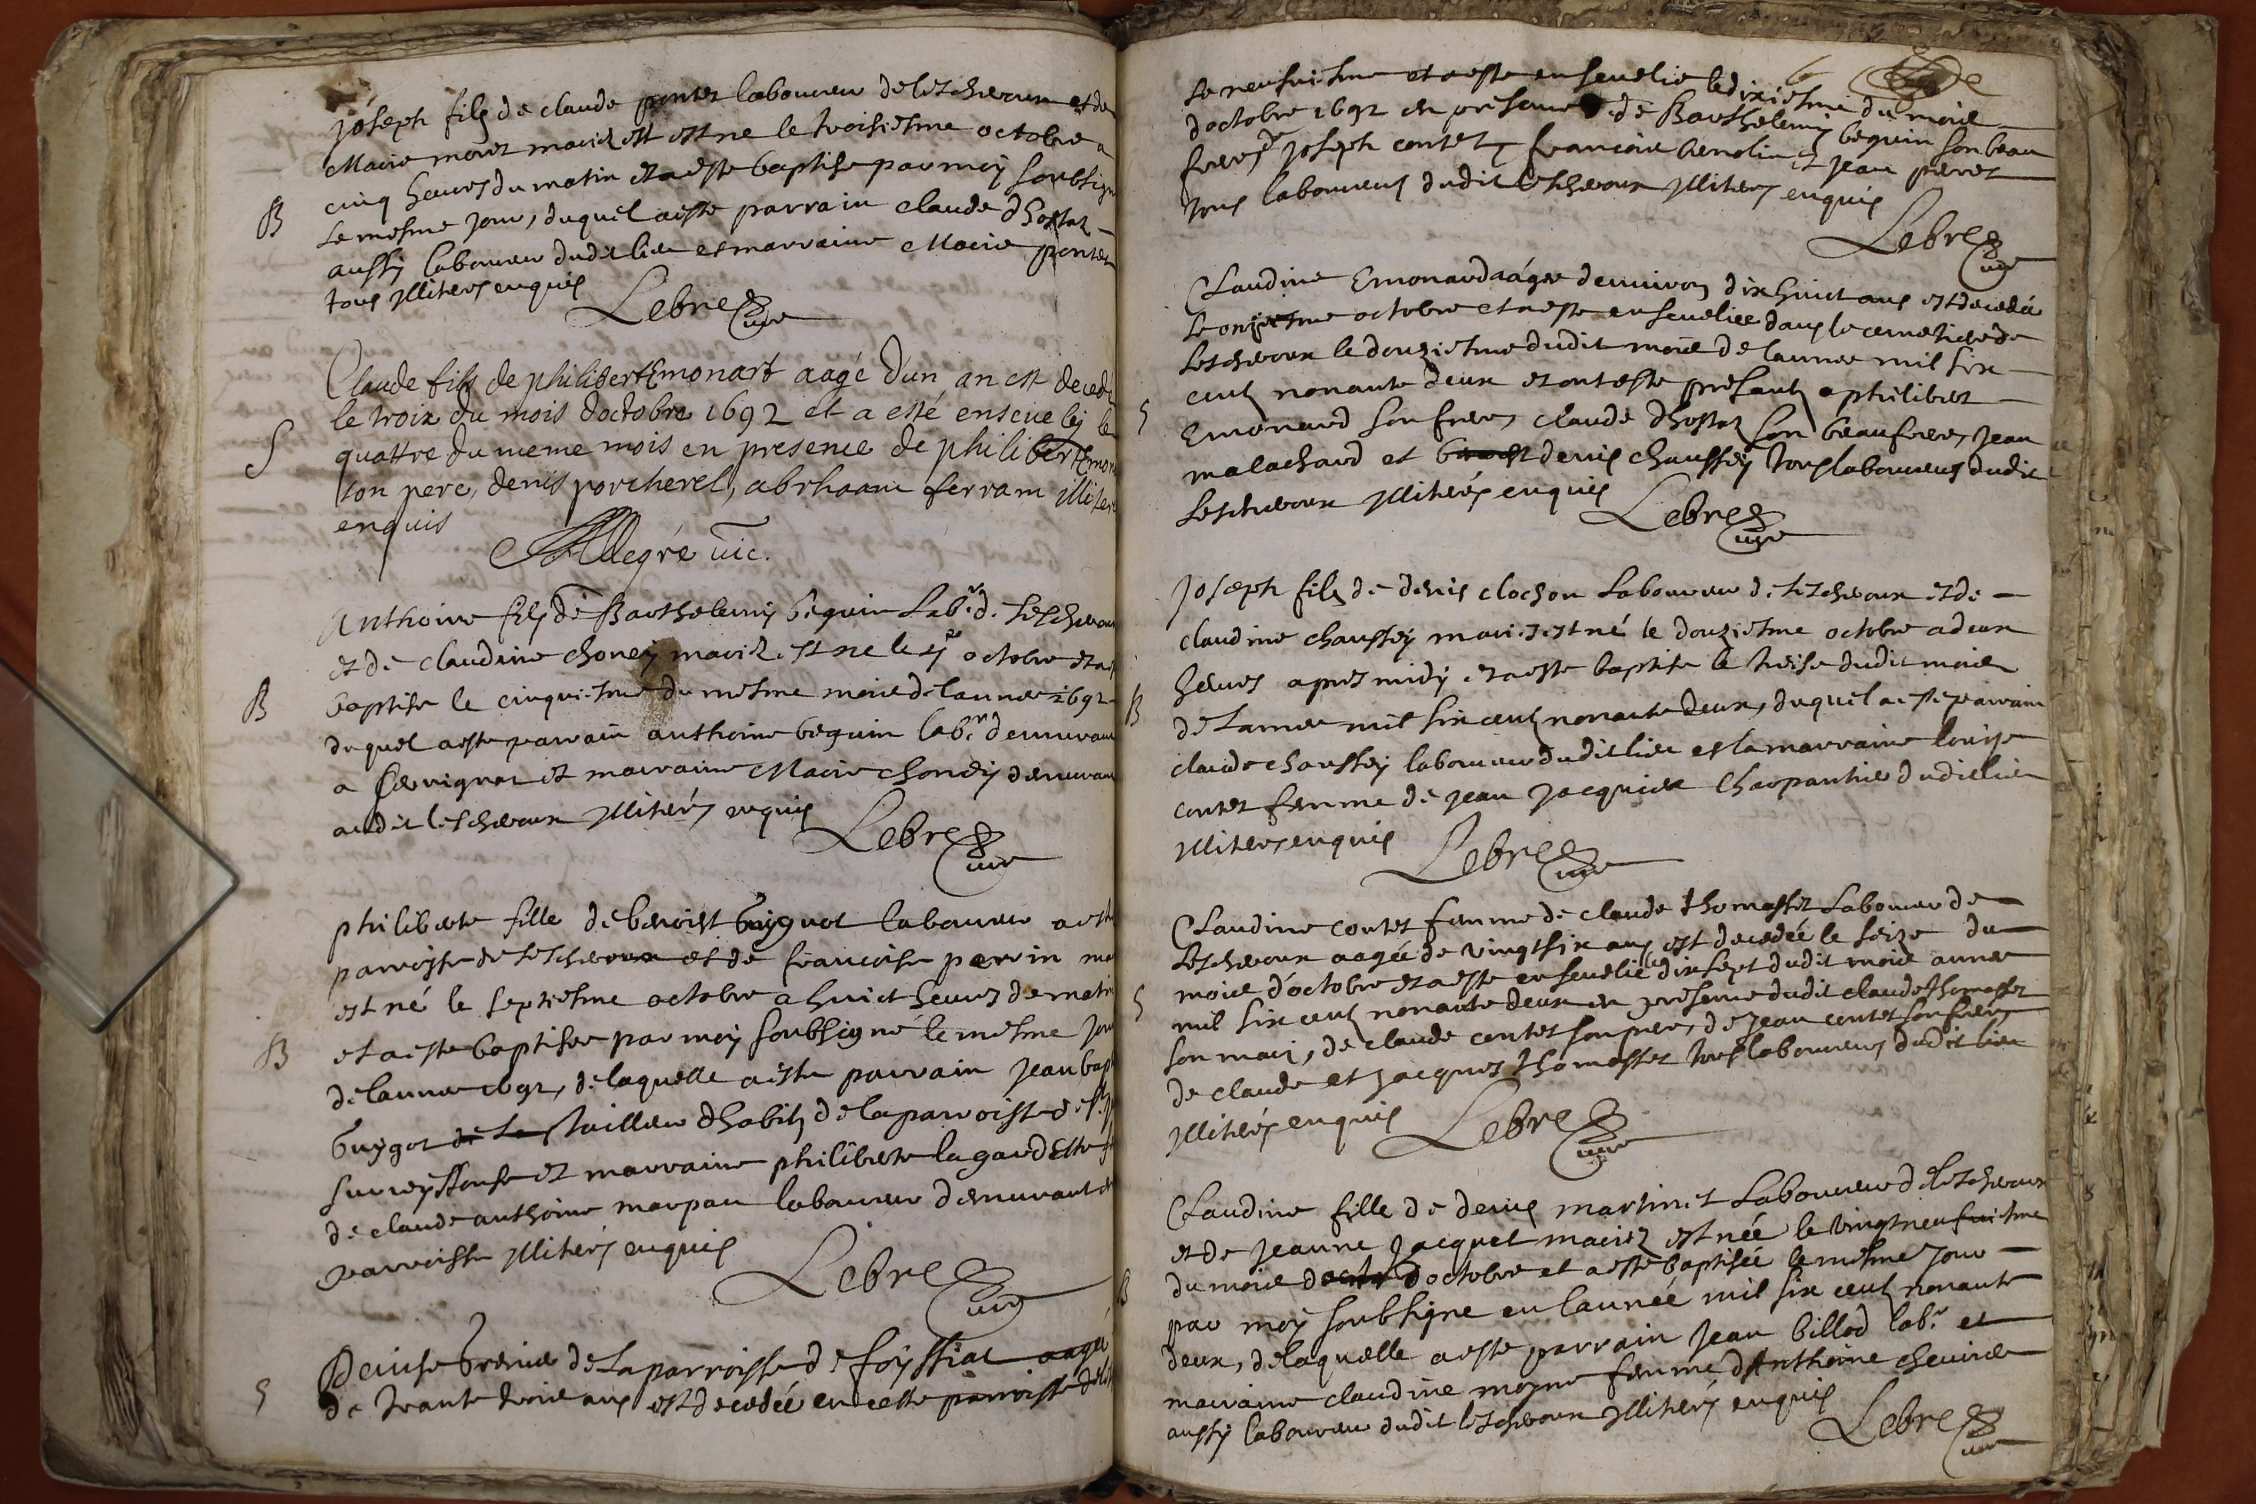 Joseph fils de claude pontet laboureur de letscheroux et de
Marie moret mariez est né le troisiesme octobre a
cinq heures du matin et a este baptise par moy soubsigne
B
le mesme jour, duquel a este parrain claude dhostat
aussy laboureur dudit lieu et marraine Marie pontet
tous illiterez enquis
Lebre curé
Claude fils de philibert Emonart aagé d'un an est decedé
le trois du mois doctobre 1692 et a esté ensevely le
S
quattre du meme mois en presence de philibert Emon
son pere, denis porcherel, abrhaam ferram illiter
enquis
Allegré vic.
Anthoine fils de Barthelemy beguin Labr de Letscheroux
et de claudine choney mariez est ne le 4e octobre et a
B
baptise le cinquiesme du mesme mois de lannee 1692
duquel a este parrain anthoine beguin labr demeurant
a et marraine Marie choney demeurant
audit letscheroux illiterez enquis
Lebre curé
philiberte fille de benoist Guygnot laboureur
parroisse de Letscheroux et de francoise perrin
est né le septiesme octobre a huict heures de matin
B
et a este baptisee par moy soubsigné le mesme jour
de lannee 1692, de laquelle a este parrain Jean bap
Guygot de La tailleur dhabits de la parroisse de st
sur reyssouse et marraine philiberte lagardette
de claude anthoine marpau laboureur demeurant
parroisse illiterez enquis
Lebre curé
S
Denise Grenier de La parroisse de foyssiat aagée
de trante trois ans est decedée en cette parroisse de
6
Le neufviesme et a este ensevelie le dixiesme du mois
doctobre 1692 en presence de Barthelemy beguin son beau
frere de Joseph contet, francois benolin et Jean perret
tous laboureurs dudit Letscheroux illiterez enquis
Lebre curé
Claudine Emonard aagée denviron dix huict ans est decedée
Le onziesme octobre et a este ensevelie dans le cemetiere de
Letscheroux le douziesme dudit mois de lannee mil six
cent nonante deux et ont este presants philibert
S
Emonard son frere, claude dhostat son beaufrere, Jean
malachard et denis chaussey tous laboureurs dudit
Letscheroux illiterez enquis
Lebre curé
Joseph fils de denis clochon Laboureur de Letscheroux et de
claudine chaussey mariez est né le douziesme octobre a deux
heures apres midy et a este baptise le treise dudit mois
B
de Lannee mil six cent nonante deux, duquel a este parrain
claude chaussey laboureur dudit lieu et la marraine louise
contet femme de Jean Jacquier charpantier dudit lieu
illiterez enquis
Lebre curé
Claudine contet femme de claude thomasset Laboureur de
Letscheroux aagée de vingtsix ans est decedée le seize du
mois d'octobre et a este ensevelie le dixsept dudit mois annee
S
mil six cent nonante deux en presence dudit claude thomasset
son mari, de claude contet son pere, de Jean contet son frere,
de claude et Jacques thomasset tous laboureurs dudit lieu
illiterés enquis
Lebre curé
Claudine fille de denis martinet Laboureur de Letscheroux
et de Jeanne Jacquet mariez est née le vingtneufviesme
du mois d'octobre et a este baptisée le mesme jour
B
par moy soubsigne en lannée mil six cent nonante
deux, de laquelle a este parrain Jean billod labr et
marraine claudine moyne femme d'Anthoine chevrier
aussy laboureur dudit letscheroux illiterés enquis
Lebre curé